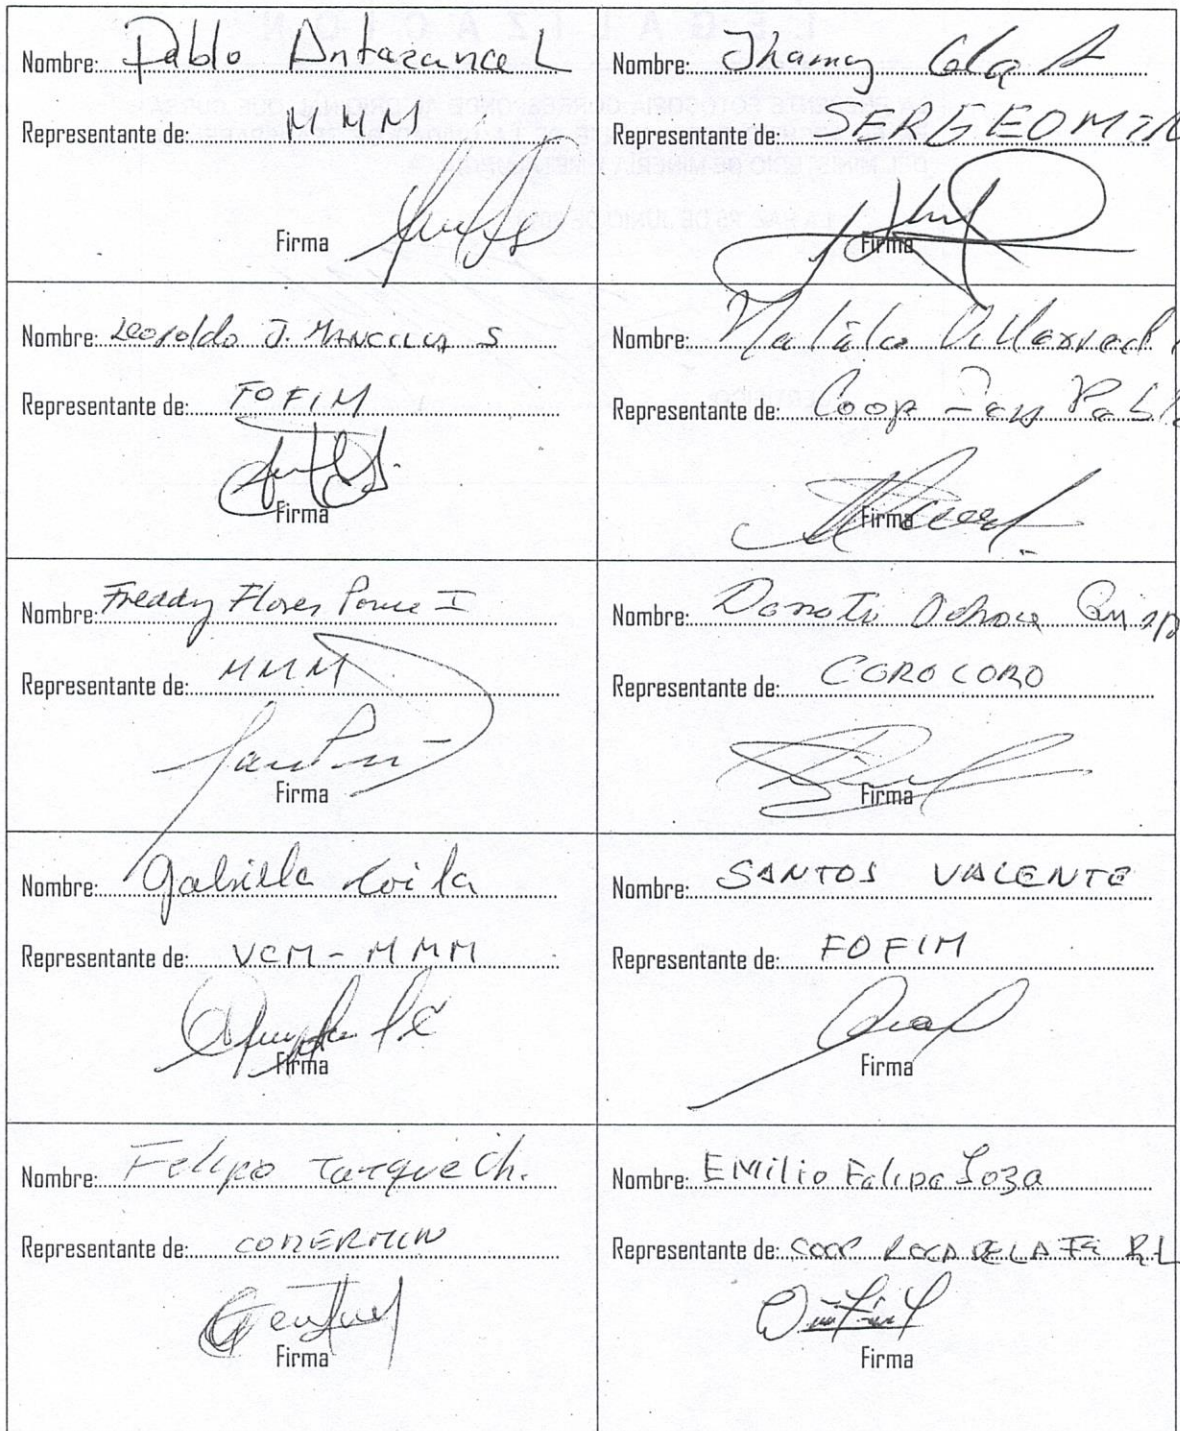 Nombre: Pablo Antazana L
Representante de: MMM
Firma
Nombre: Jhamy
Representante de: SERGEOMIN
Firma
Nombre: Leopoldo J. MANCILLA S
Representante de: FOFIM
Firma
Nombre: Natalio Villarroel
Representante de: Coop San Pablo
Firma
Nombre: Freddy Flores Ponce I
Representante de: MMM
Firma
Nombre: Donato Ochoa Quisp
Representante de: COROCORO
Firma
Nombre: Gabriella Coila
Representante de: VCM - MMM
Firma
Nombre: SANTOS VALENTE
Representante de: FOFIM
Firma
Nombre: Felipo Tarque Ch.
Representante de: COMERMIN
Firma
Nombre: EMilio Felipe Loza
Representante de: COOP ROCA DE LA FE R.L
Firma